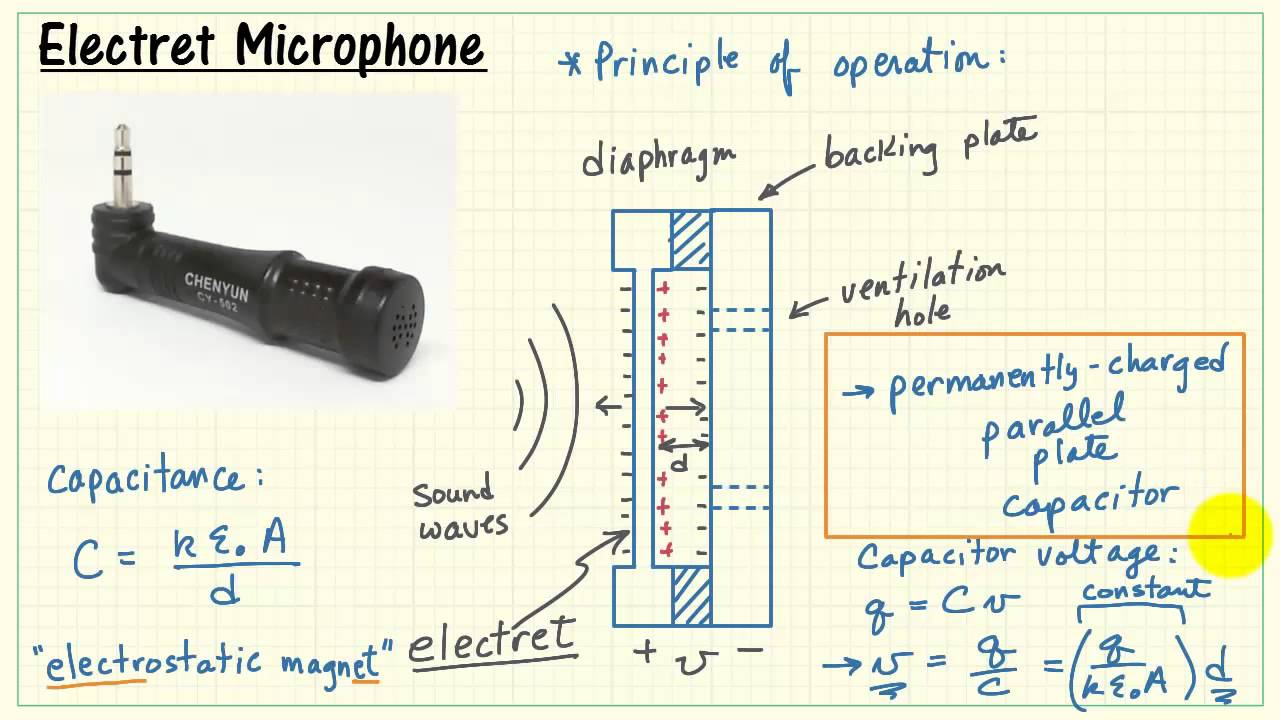 Electret Microphone
* Principle of operation:
diaphragm
backing plate
CHENYUN
CY-502
ventilation
hole
→ permanently-charged
parallel
plate
capacitor
d
sound
waves
Capacitance:
C = k ε₀ A / d
"electrostatic magnet"
electret
+ v −
Capacitor voltage:
constant
q = C v
→ v = q / C = (q / k ε₀ A) d